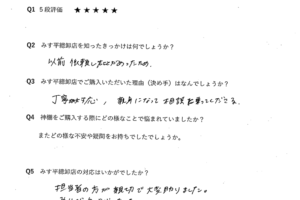 Q1 5段評価 ★★★★★
Q2 みす平総卸店を知ったきっかけは何でしょうか?
以前 依頼したことがあったため.
Q3 みす平総卸店でご購入いただいた理由(決め手)はなんでしょうか?
丁寧な対応、親身になって相談に乗ってくださる.
Q4 神棚をご購入する際にどの様なことで悩まれていましたか?
またどの様な不安や疑問をお持ちでしたでしょうか。
Q5 みす平総卸店の対応はいかがでしたか?
担当者の方が親切で大変助かりました。